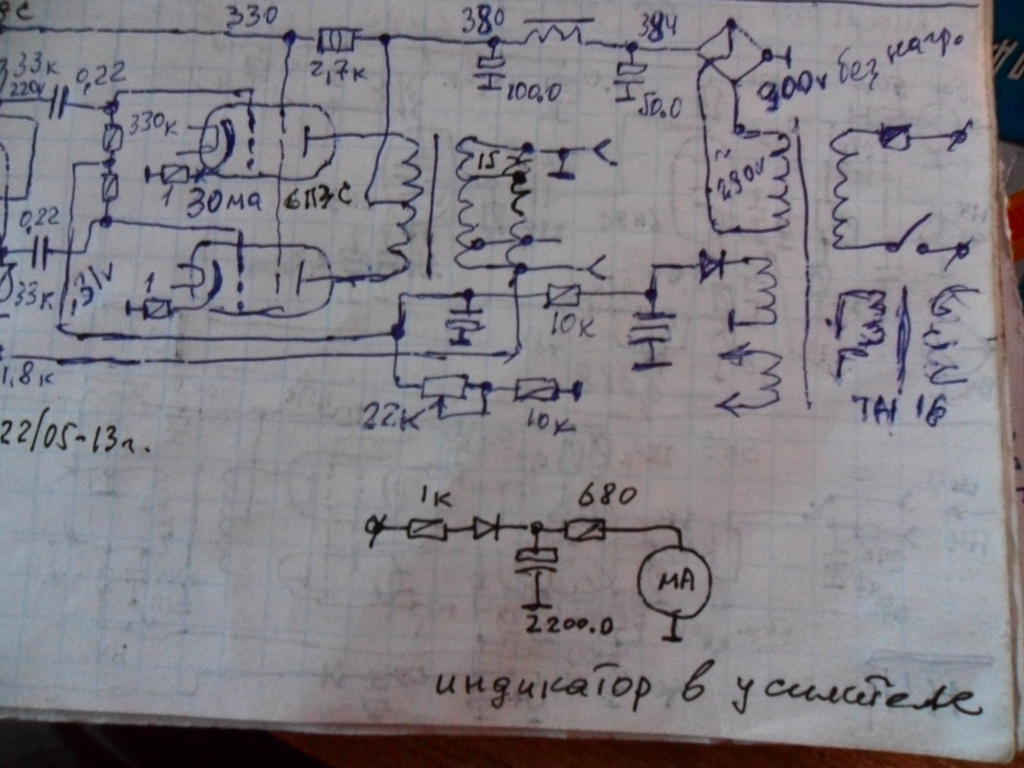 330
380
384
2,7к
100.0
50.0
400v без нагр.
33к
220v
0,22
330к
1
30ма 6П3С
15
~ 290v
0,22
33к
1
10к
1,8к
22к
10к
ТАН 16
22/05-13г.
1к
680
МА
2200.0
индикатор в усилителе